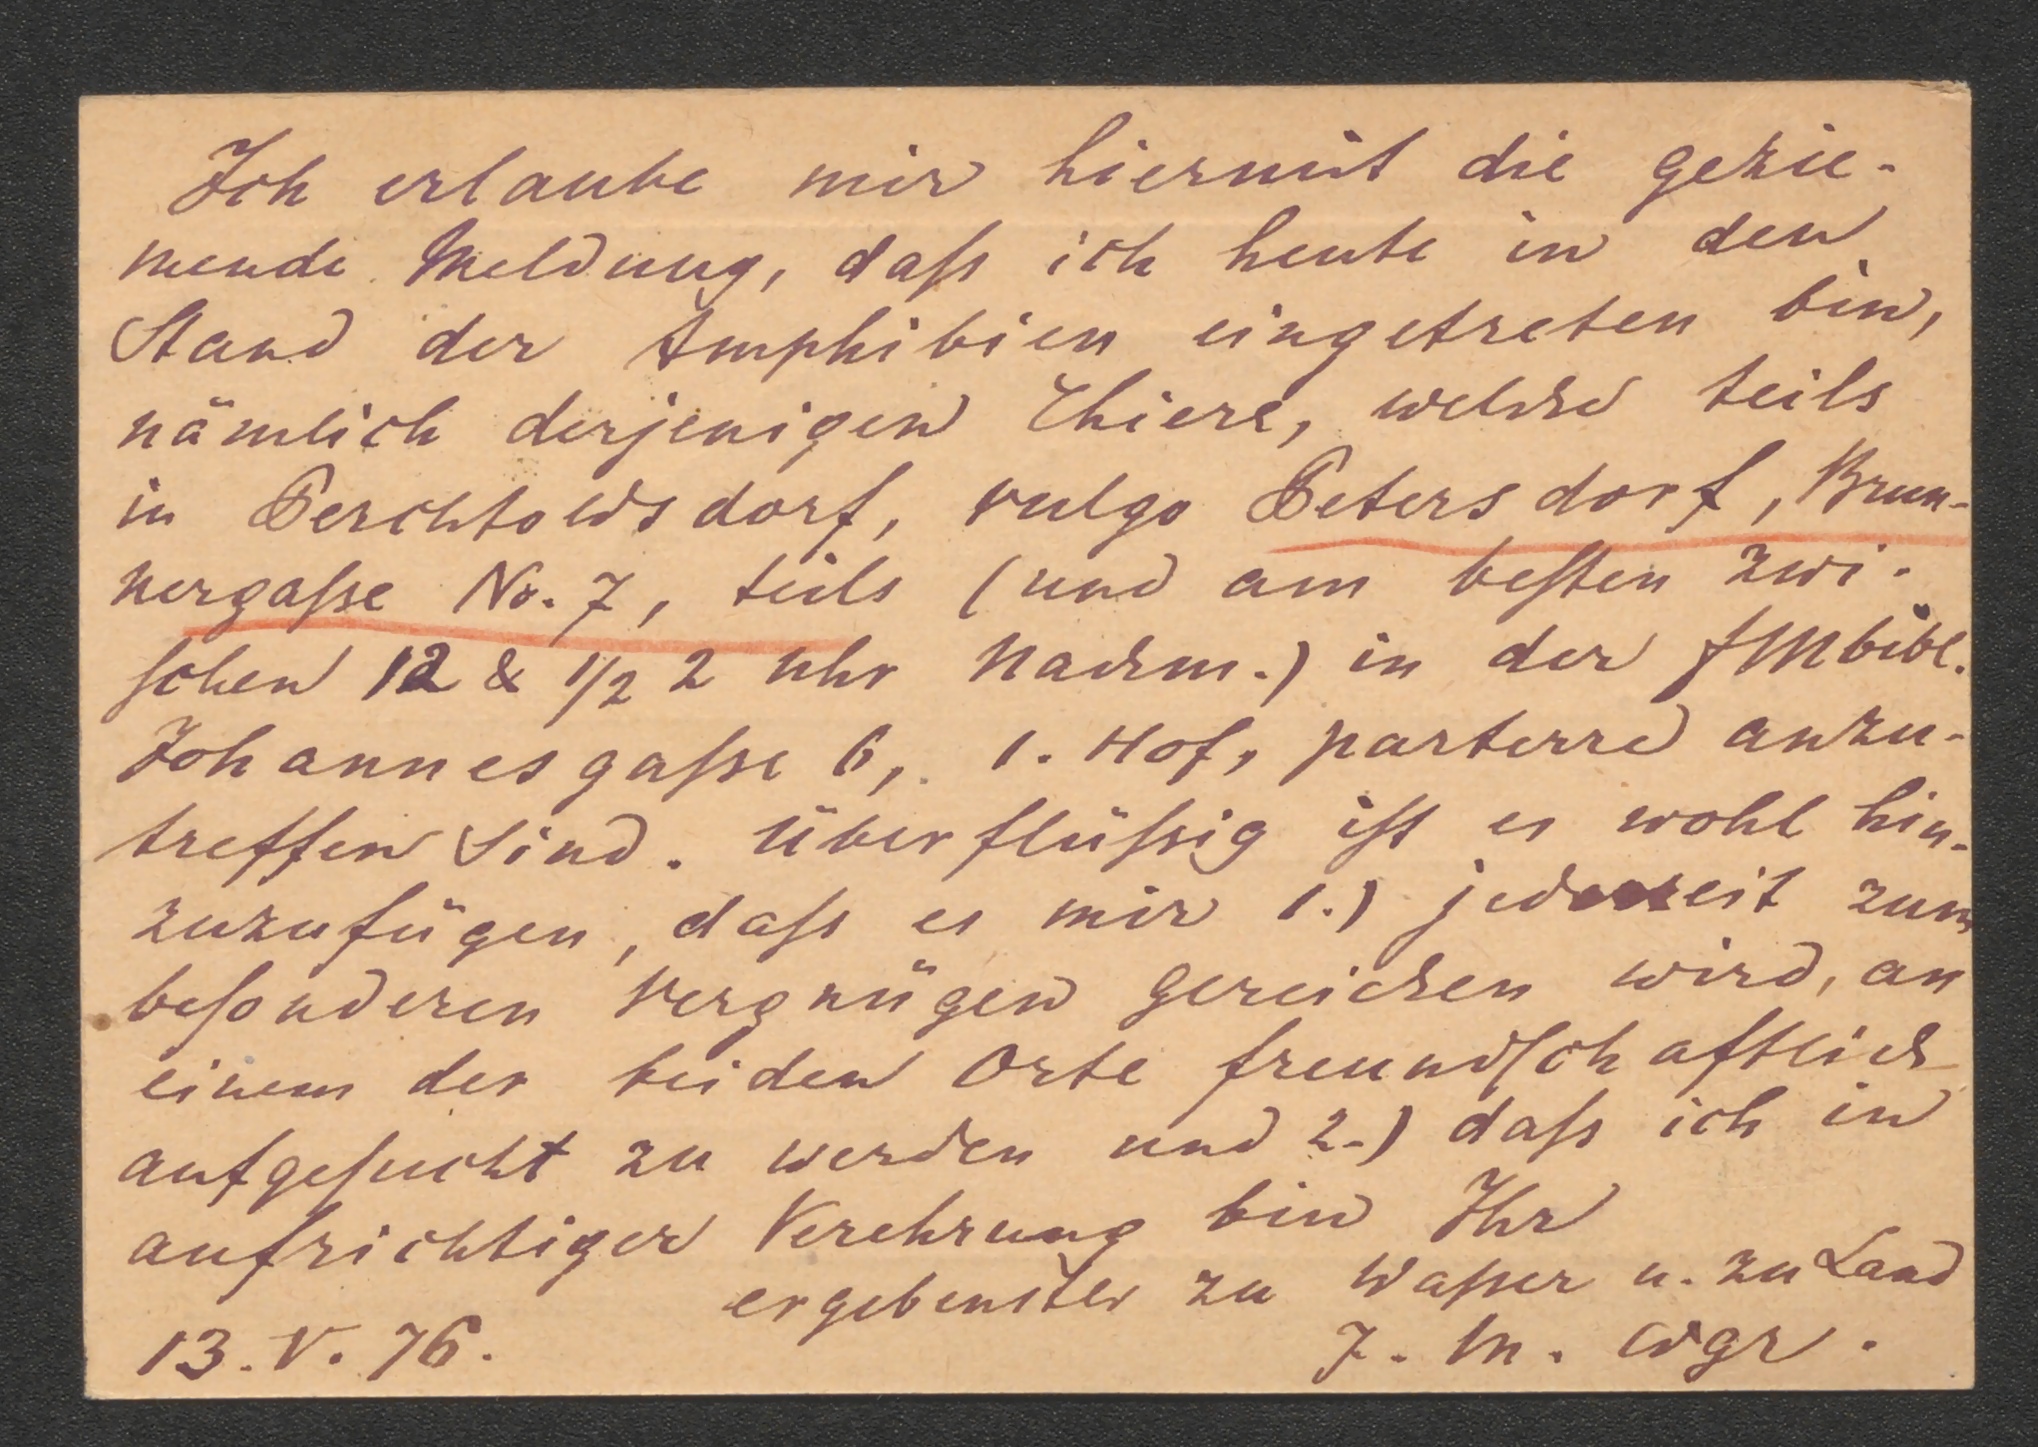 Ich erlaube mir hiermit die gezie-
mende Meldung, daſs ich heute in den
Stand der Amphibien eingetreten bin,
nämlich derjenigen Thiere, welche teils
in Perchtoldsdorf, vulgo Petersdorf, Brun-
nergaſse No. 7, teils (und am beſten zwi-
ſchen 12 & 1/2 2 Uhr Nachm.) in der FMbibl.
Johannesgaſse 6, 1. Hof, parterre anzu-
treffen sind. Überflüſsig iſt es wohl hin-
zuzufügen, daſs es mir 1.) jederzeit zum
beſonderen Vergnügen gereichen wird, an
einem der beiden Orte freundſchaftlich
aufgeſucht zu werden und 2.) daſs ich in
aufrichtiger Verehrung bin Ihr
ergebenster zu Waſser u. zu Land
13. V. 76. J. M. Wgr.